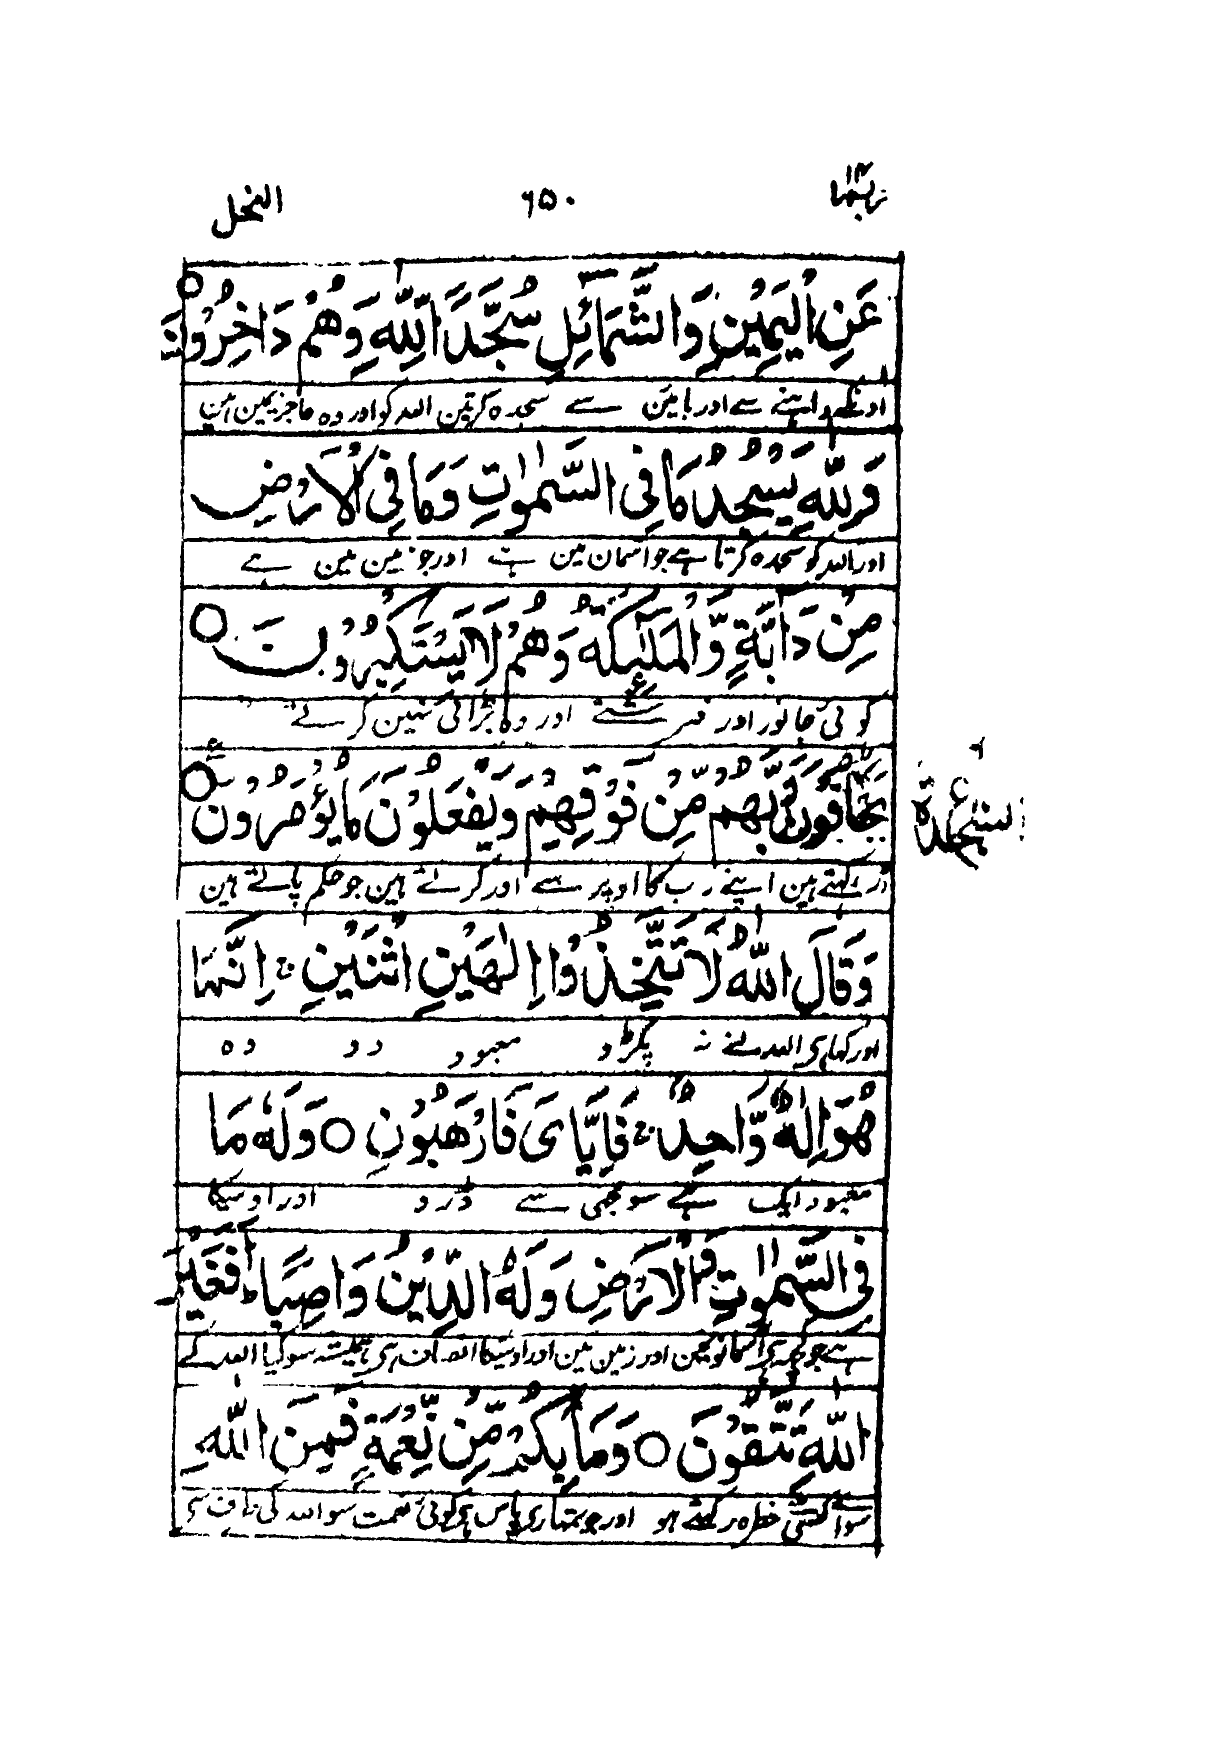 ربما ١٤ ٦٥٠ النحل
عَنِ الْيَمِيْنِ وَالشَّمَآئِلِ سُجَّدًا لِّلّٰهِ وَهُمْ دَاخِرُوْنَ ○
اونکے داہنے سے اور بائین سے سجدہ کرتین اللہ کو اور وہ عاجزی مین ہین
وَلِلّٰهِ يَسْجُدُ مَا فِى السَّمٰوٰتِ وَمَا فِى الْاَرْضِ
اور اللہ کو سجدہ کرتا ہے جو آسمان مین ہے اور جو زمین مین ہے
مِنْ دَآبَّةٍ وَّالْمَلٰٓئِكَةُ وَهُمْ لَا يَسْتَكْبِرُوْنَ ○
کوئی جانور اور فرشتے اور وہ بڑائی نہین کرتے
يَخَافُوْنَ رَبَّهُمْ مِّنْ فَوْقِهِمْ وَيَفْعَلُوْنَ مَا يُؤْمَرُوْنَ ○
ڈر رکھتے ہین اپنے رب کا اوپر سے اور کرتے ہین جو حکم پاتے ہین
السجدة
وَقَالَ اللّٰهُ لَا تَتَّخِذُوْٓا اِلٰهَيْنِ اثْنَيْنِ ۚ اِنَّمَا
اور کہا ہی اللہ نے نہ پکڑو معبود دو وہ
هُوَ اِلٰهٌ وَّاحِدٌ ۚ فَاِيَّاىَ فَارْهَبُوْنِ ○ وَلَهٗ مَا
معبود ایک ہے سو مجھی سے ڈرو اور اوسیکا
فِى السَّمٰوٰتِ وَالْاَرْضِ وَلَهُ الدِّيْنُ وَاصِبًا ؕ اَفَغَيْرَ
ہے جو کچھ ہی آسمانو نمین اور زمین مین اور اوسیکا انصاف ہی ہمیشہ سو کیا اللہ کے
اللّٰهِ تَتَّقُوْنَ ○ وَمَا بِكُمْ مِّنْ نِّعْمَةٍ فَمِنَ اللّٰهِ
سوائے کسی خطرہ رکھتے ہو اور جو تمہاری پاس ہی کوئی نعمت سو اللہ کی طرف سی